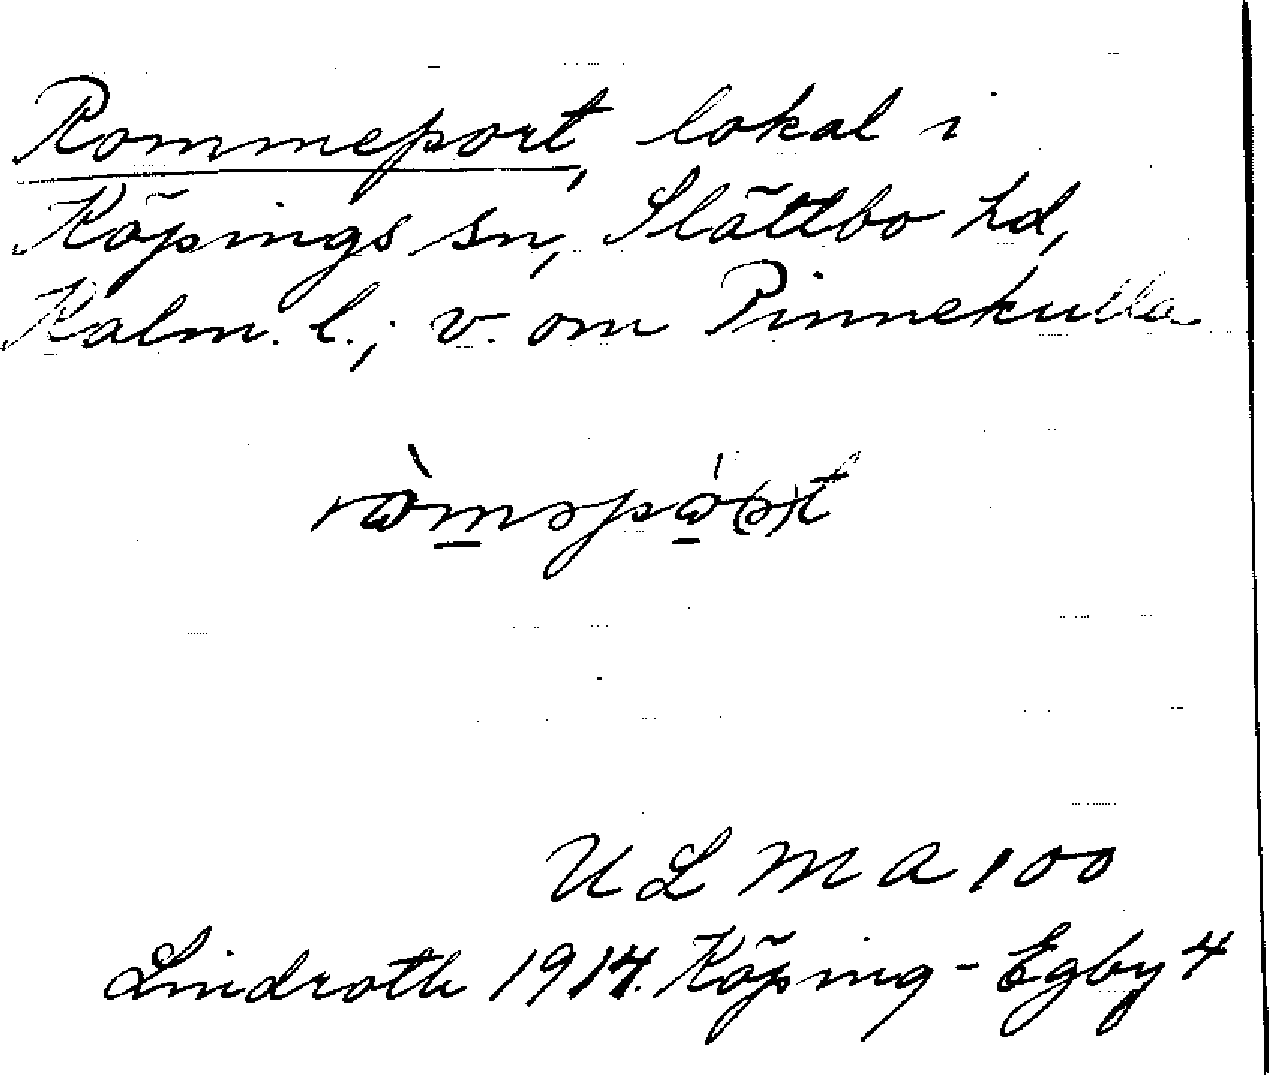 Rommeport, lokal i
Köpings sn, Slättbo hd,
Kalm. l.; v. om Pinnekulla
ULMA 100
Lindroth 1914. Köping - Egby 4